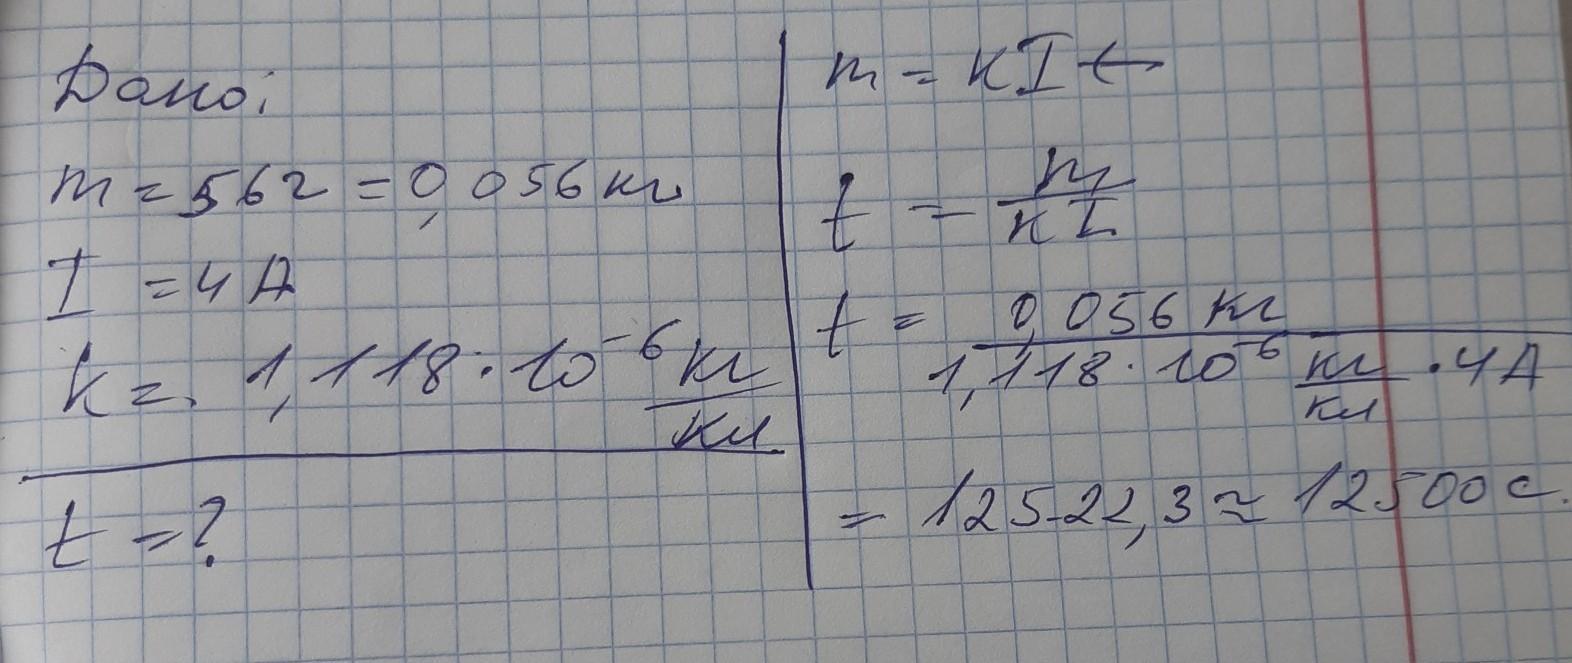 Дано:
m = 56 г = 0,056 кг
I = 4 А
k = 1,118 · 10⁻⁶ кг/кл
t = ?
m = kIt
t = m/kI
t = 0,056 кг / 1,118 · 10⁻⁶ кг/кл · 4 А
= 12522,3 ≈ 12500 с.